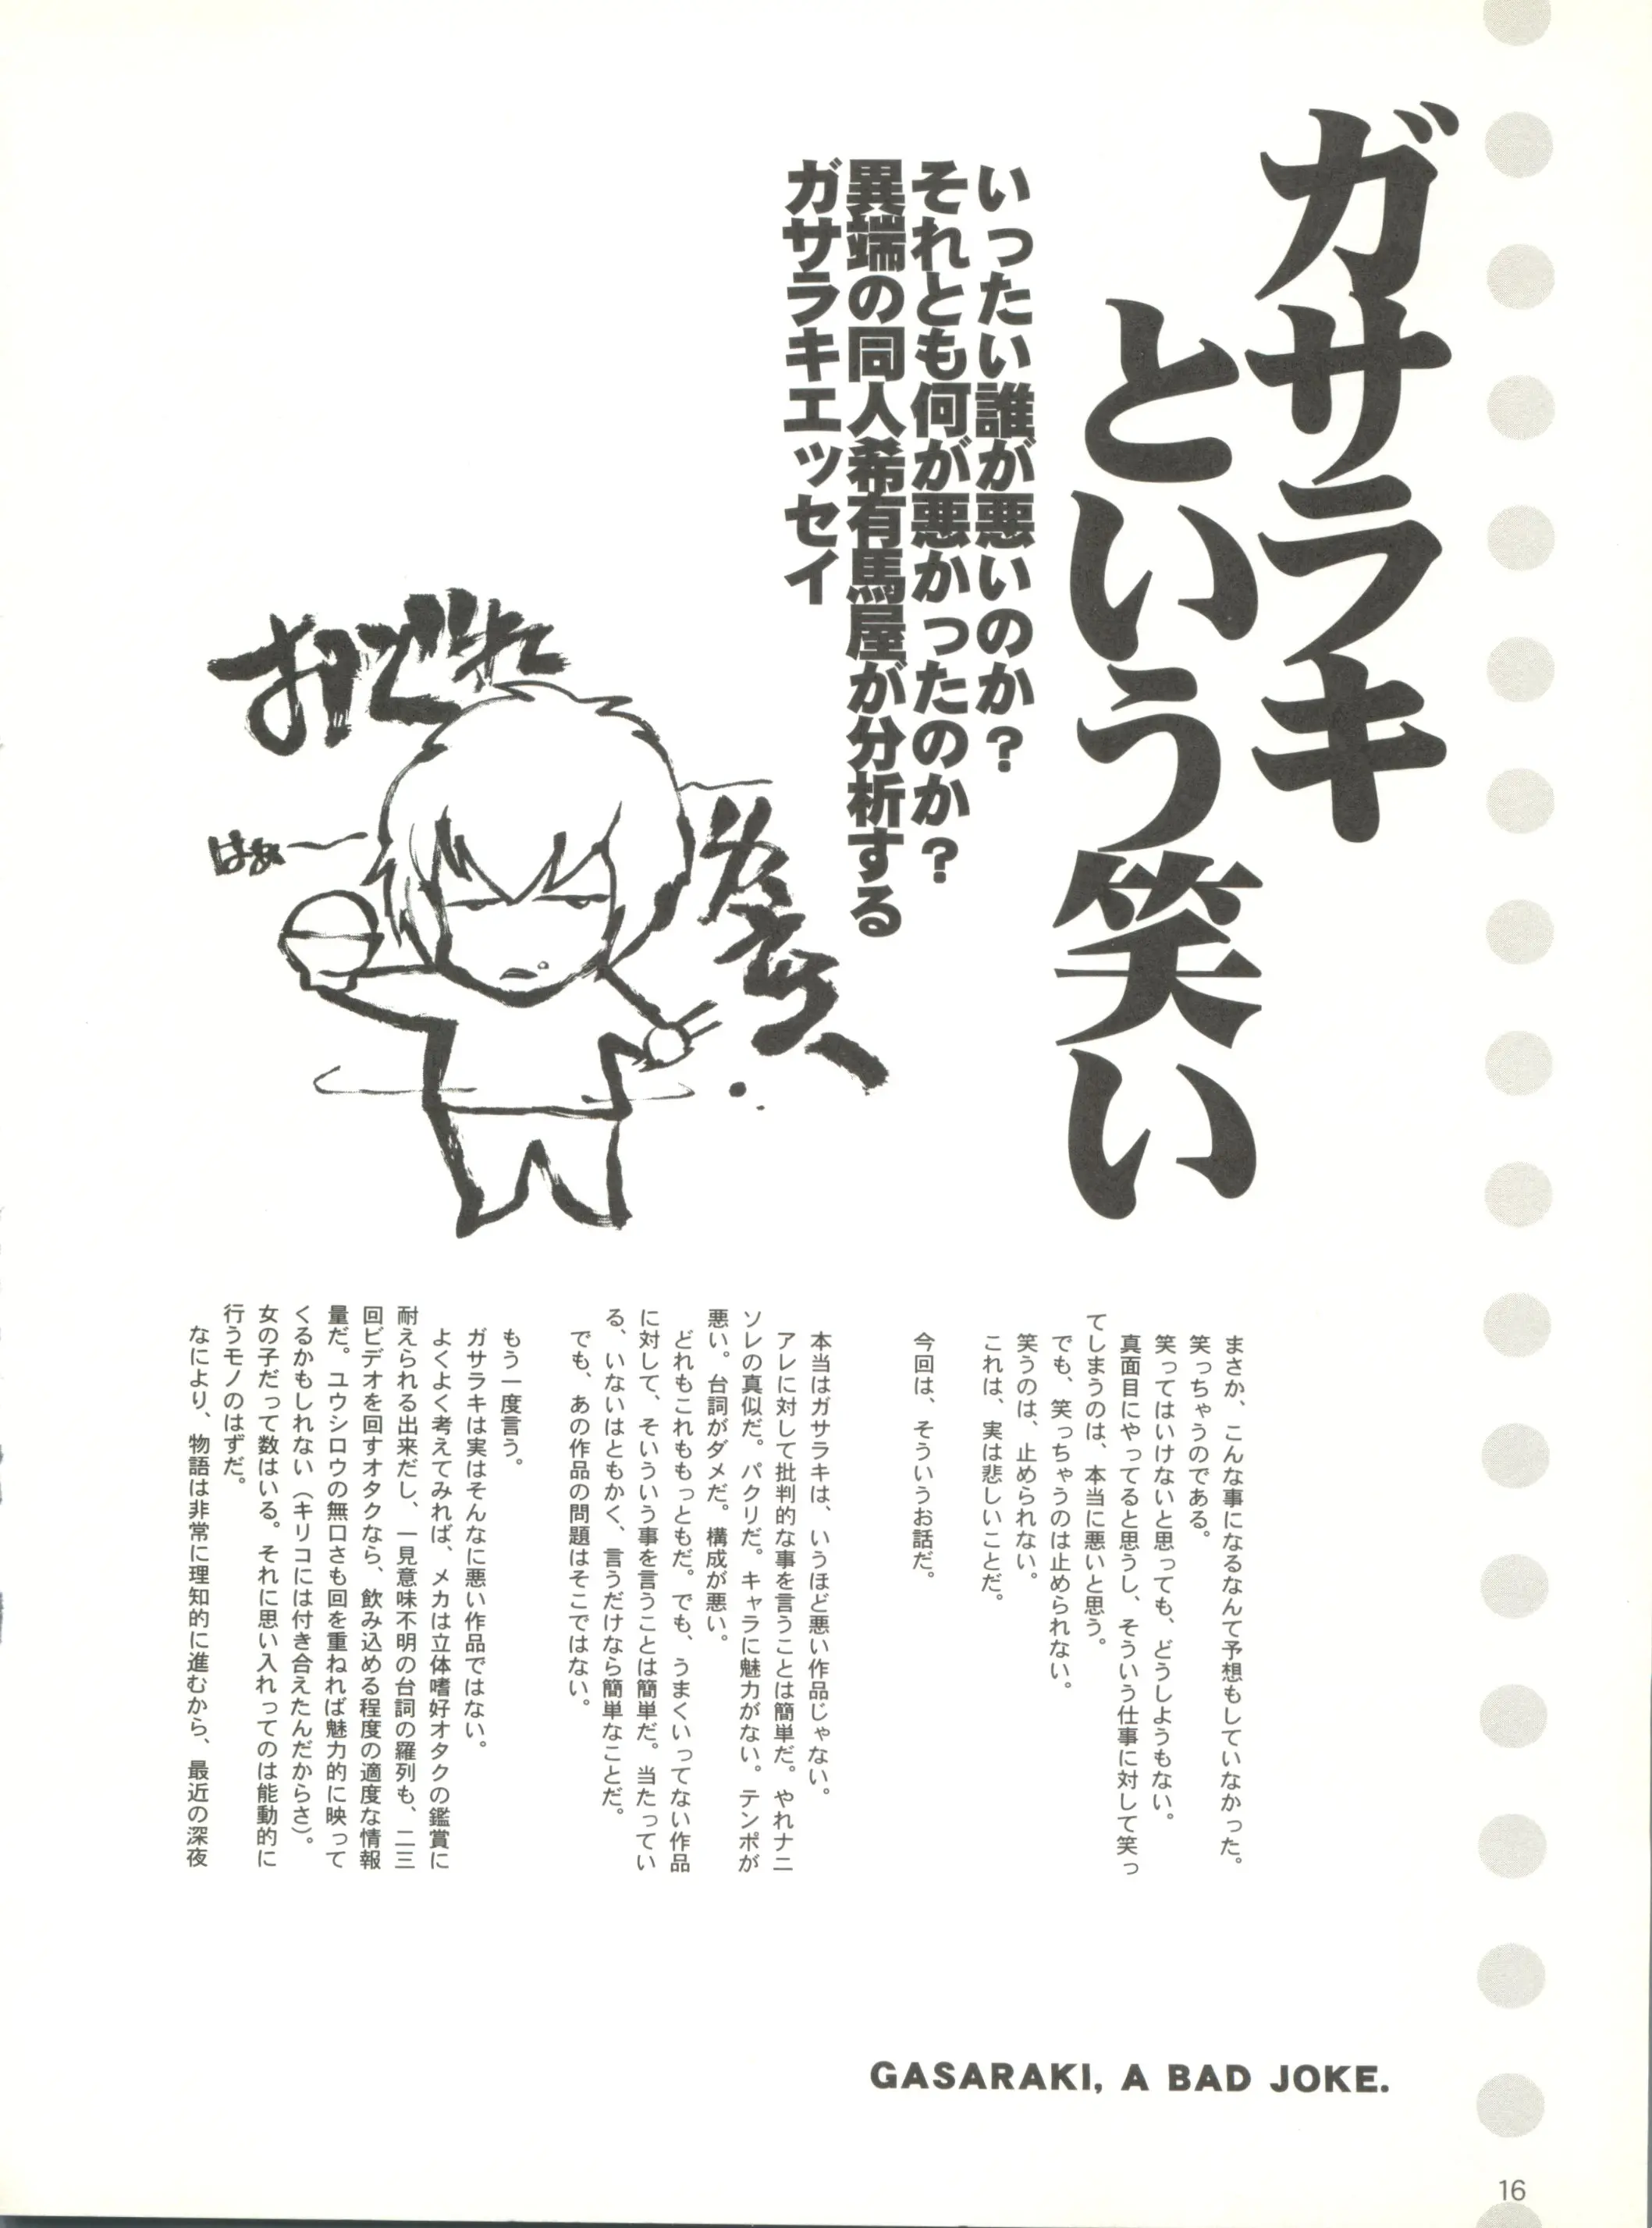 ガサラキ
という笑い
いったい誰が悪いのか？
それとも何が悪かったのか？
異端の同人希有馬屋が分析する
ガサラキエッセイ
おどれ
ガサラ、
はぁ〜
まさか、こんな事になるなんて予想もしていなかった。
笑っちゃうのである。
笑ってはいけないと思っても、どうしようもない。
真面目にやってると思うし、そういう仕事に対して笑っ
てしまうのは、本当に悪いと思う。
でも、笑っちゃうのは止められない。
笑うのは、止められない。
これは、実は悲しいことだ。
今回は、そういうお話だ。
本当はガサラキは、いうほど悪い作品じゃない。
アレに対して批判的な事を言うことは簡単だ。やれナニ
ソレの真似だ。パクリだ。キャラに魅力がない。テンポが
悪い。台詞がダメだ。構成が悪い。
どれもこれももっともだ。でも、うまくいってない作品
に対して、そいういう事を言うことは簡単だ。当たってい
る、いないはともかく、言うだけなら簡単なことだ。
でも、あの作品の問題はそこではない。
もう一度言う。
ガサラキは実はそんなに悪い作品ではない。
よくよく考えてみれば、メカは立体嗜好オタクの鑑賞に
耐えられる出来だし、一見意味不明の台詞の羅列も、二三
回ビデオを回すオタクなら、飲み込める程度の適度な情報
量だ。ユウシロウの無口さも回を重ねれば魅力的に映って
くるかもしれない（キリコには付き合えたんだからさ）。
女の子だって数はいる。それに思い入れってのは能動的に
行うモノのはずだ。
なにより、物語は非常に理知的に進むから、最近の深夜
GASARAKI, A BAD JOKE.
16